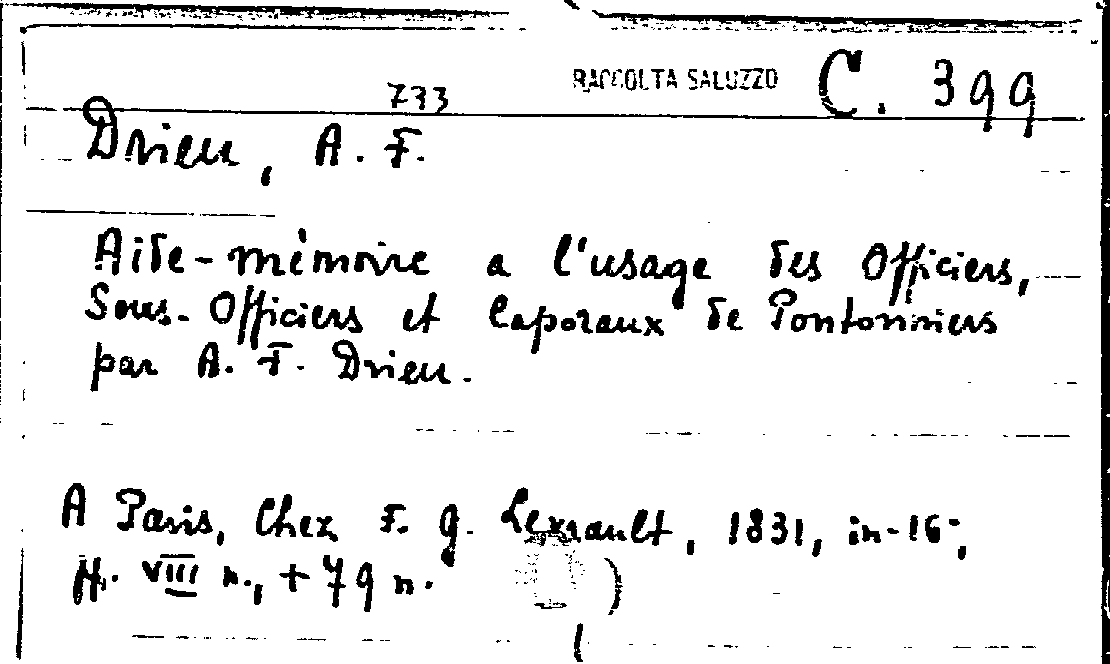 RACCOLTA SALUZZO C. 399
733
Drieu, A. F.
Aide-mémoire a l'usage des Officiers,
Sous-Officiers et Caporaux de Pontonniers
par A. F. Drieu.
A Paris, Chez F. G. Levrault, 1831, in-16°,
pp. VIII n., + 79 n.